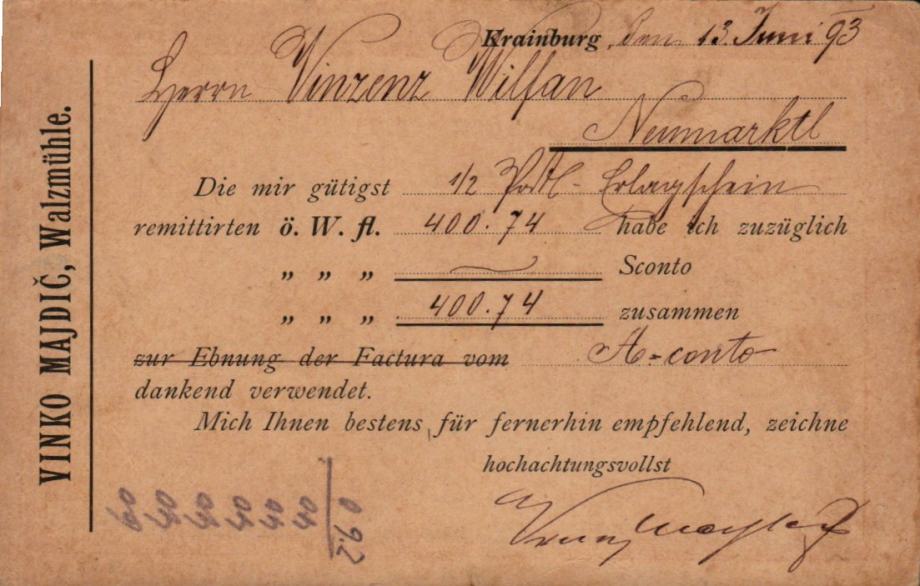 VINKO MAJDIČ, Walzmühle.
Krainburg, den 13. Juni 93
Herrn Vinzenz Wilfan
Neumarktl
Die mir gütigst 1/2 Post-Erlagschein
remittirten ö. W. fl. 400.74 habe ich zuzüglich
„ „ „ Sconto
„ „ „ 400.74 zusammen
zur Ebnung der Factura vom A-conto
dankend verwendet.
Mich Ihnen bestens für fernerhin empfehlend, zeichne
hochachtungsvollst